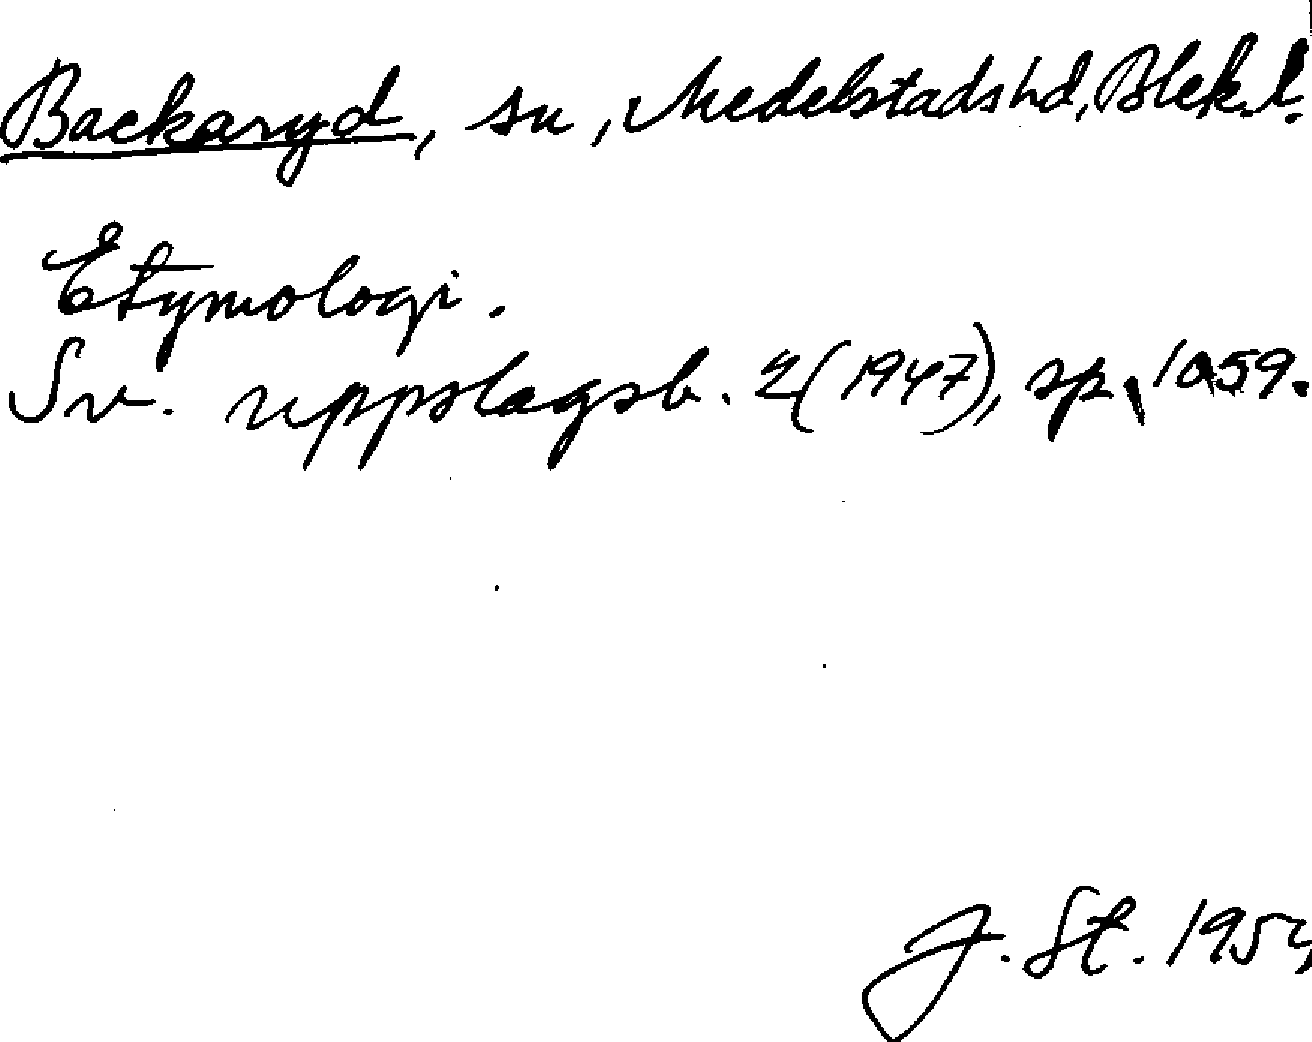 Backaryd, sn, Medelstads hd, Blek. l.
Etymologi.
Sv. uppslagsb. 2 (1947), sp. 1059.
J. St. 1954